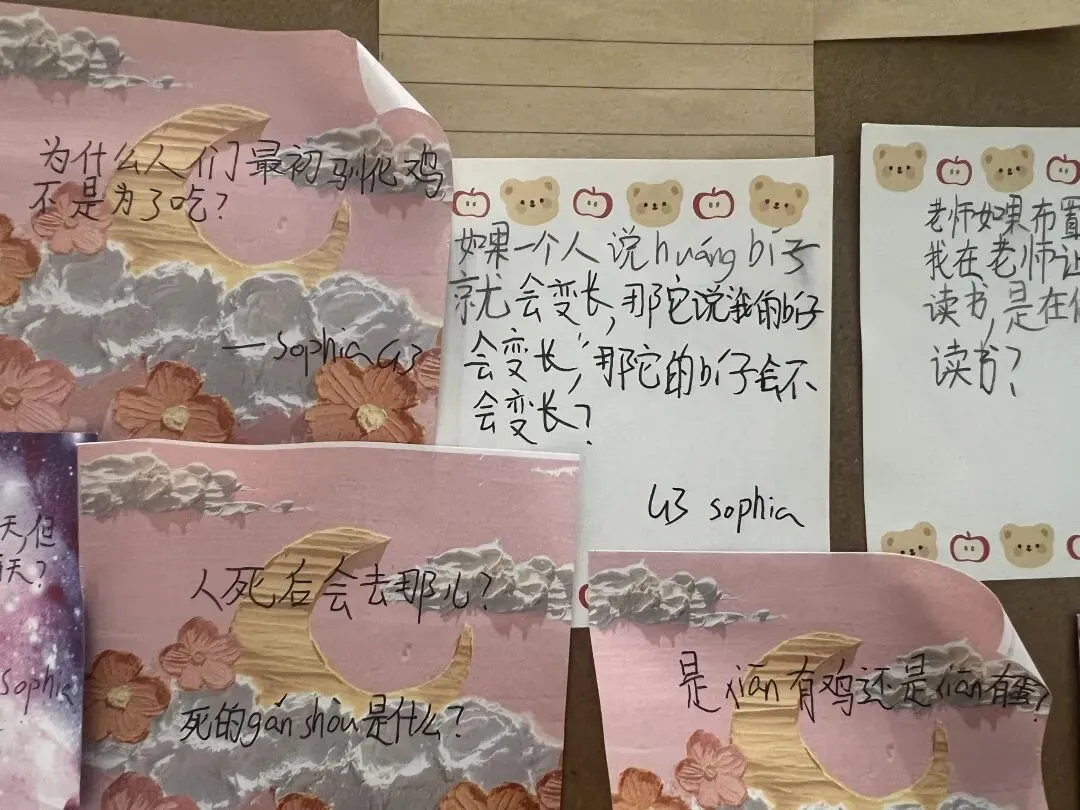 为什么人们最初驯化鸡
不是为了吃?
—sophia G3
如果一个人说huáng bí子
就会变长,那它说“我的bí子
会变长”,那它的bí子会不
会变长?
G3 sophia
老师如果布置
我在老师让
读书,是在
读书?
天,但
天?
Sophia
人死后会去那儿?
死的gǎn shòu是什么?
是xiān有鸡还是xiān有蛋?